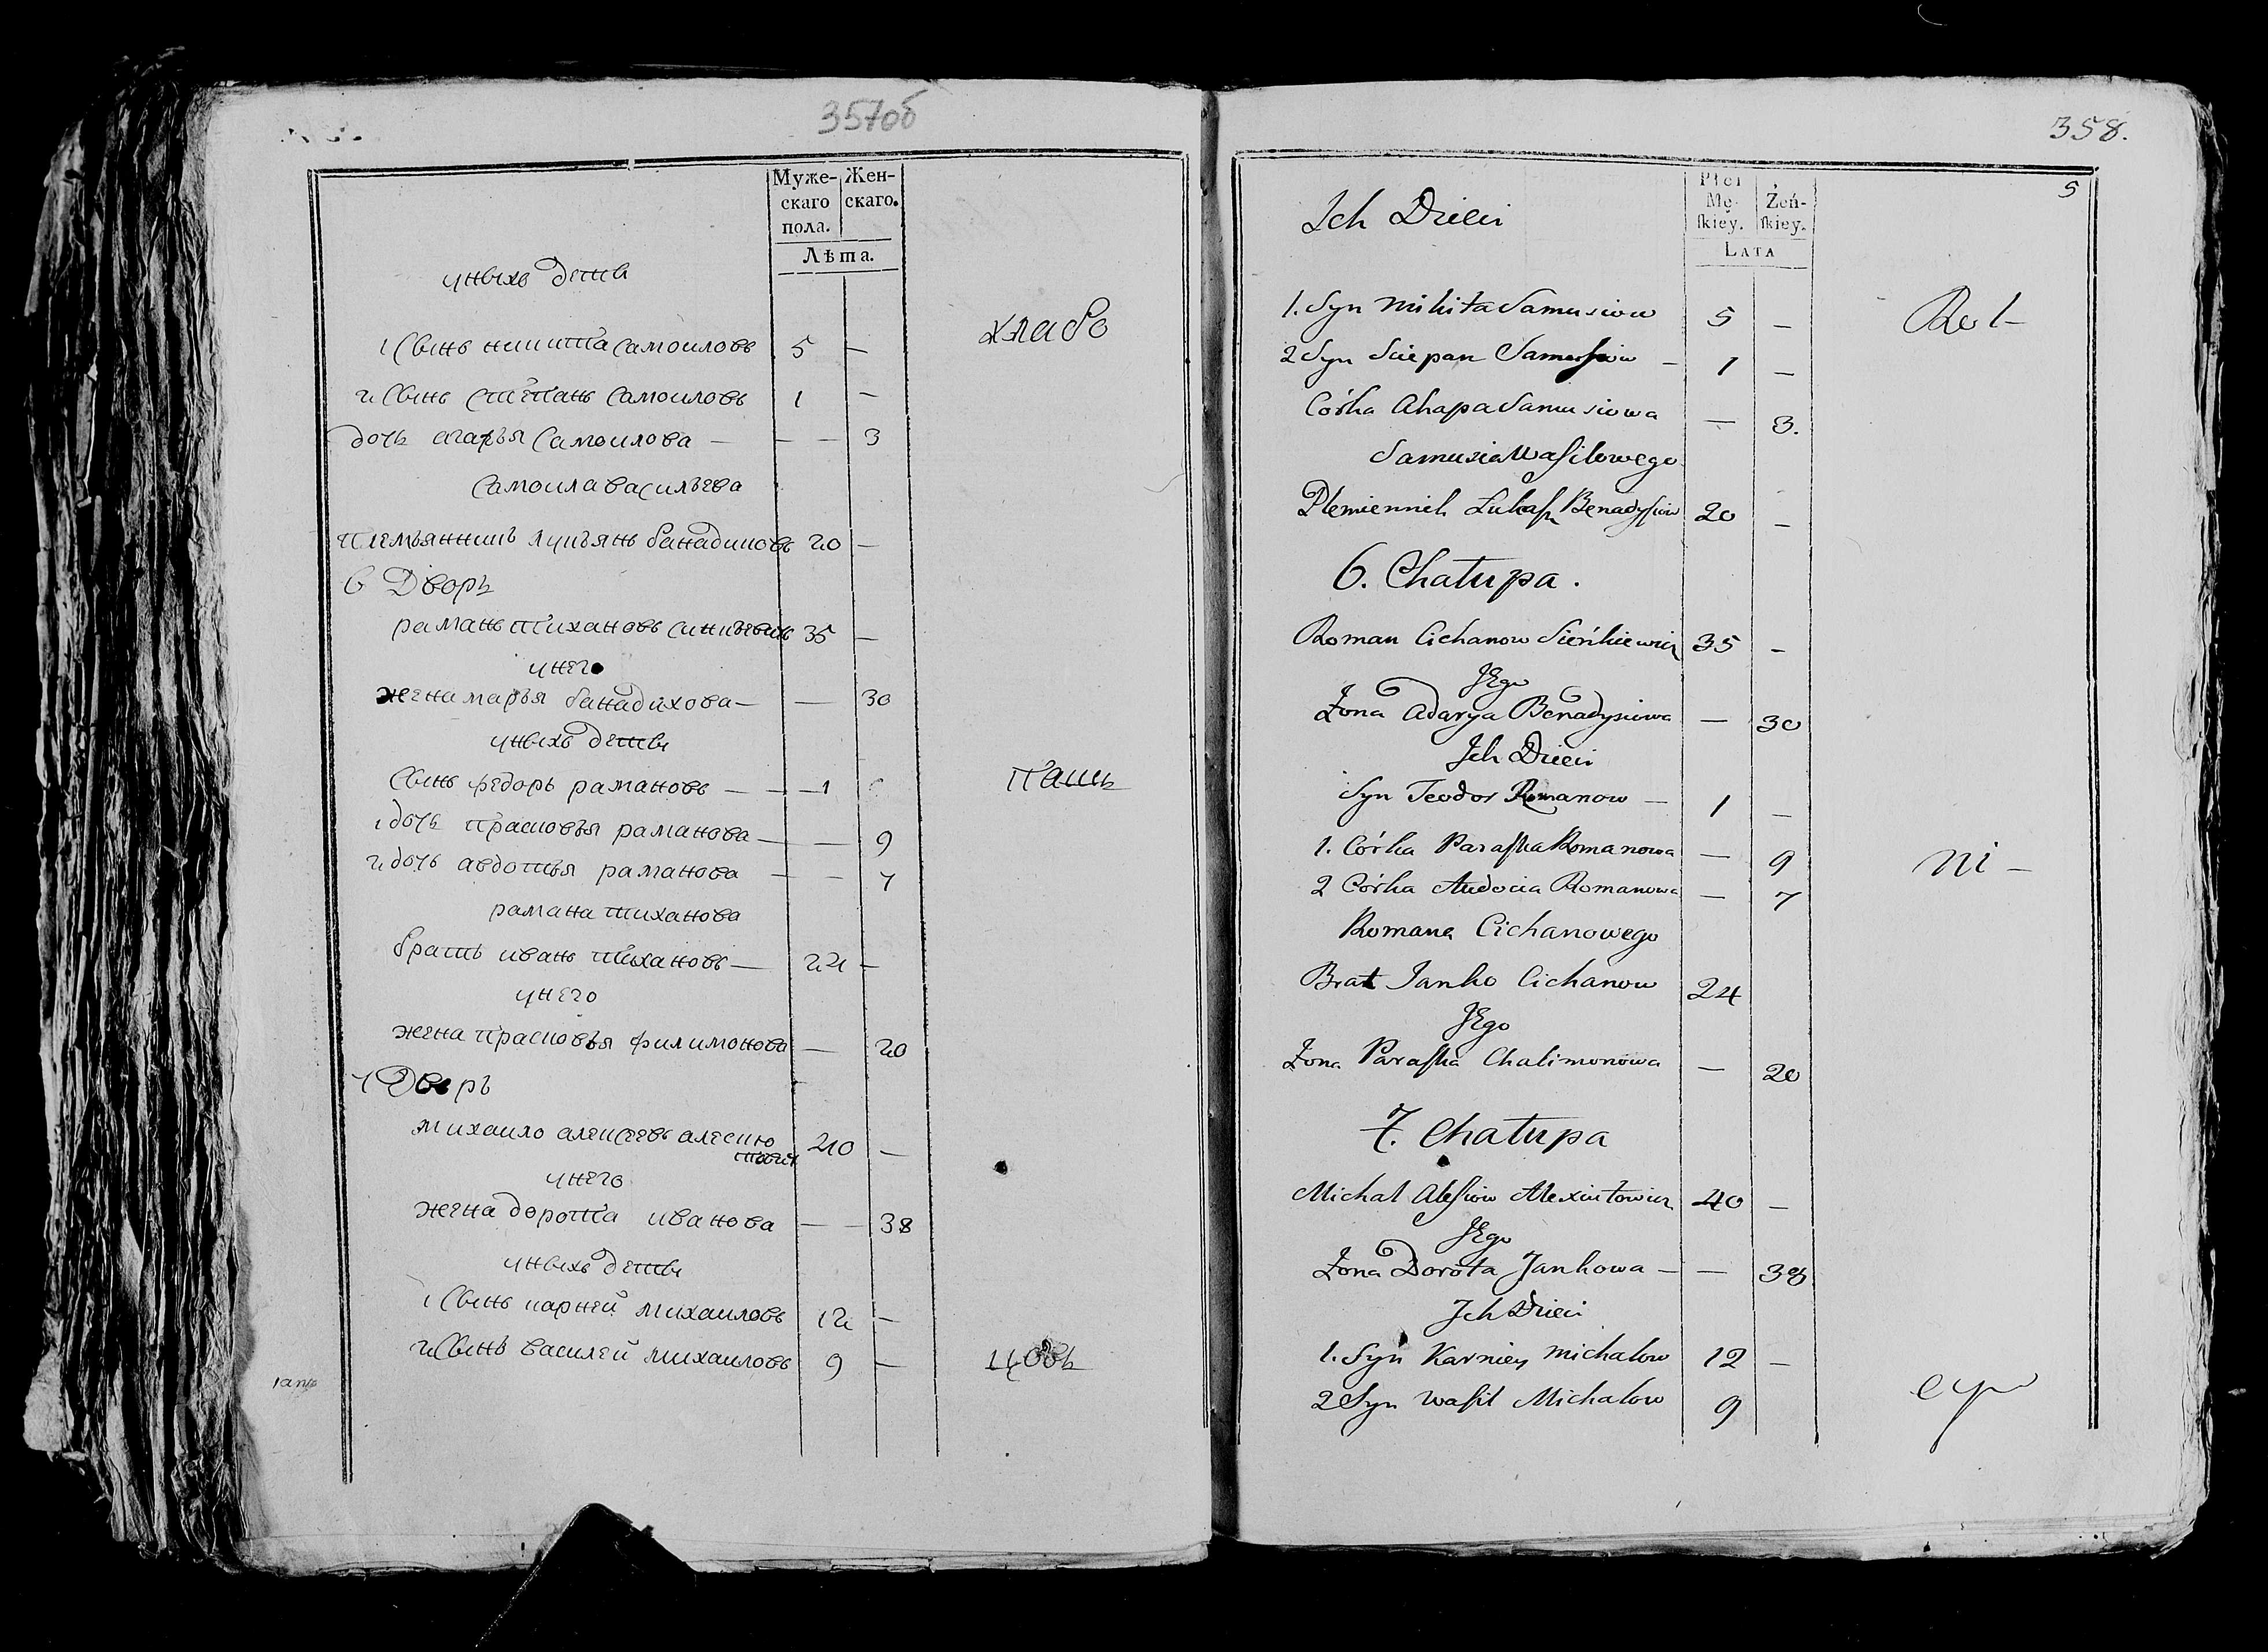 357об
Муже- Жен-
скаго скаго.
пола.
Лѣта.
унихъ дети
хлебо
1 Сынъ никита Самоиловъ 5 —
2 Сынъ степанъ Самоиловъ 1 —
дочь агапья Самоилова — — — 3
Самоила васильева
племьянникъ лукъянъ банадиковъ 20 —
6 Дворъ
романъ тихановъ синкевичь 35 —
унего
жена марья банадихова — — 30
унихъ дети
Сынъ федоръ рамановъ — — 1
пашь
1 дочь прасковья раманова — — 9
2 дочь авдотья раманова — — 7
рамана тиханова
братъ иванъ тихановъ — 24 —
унего
жена прасковья филимонова — 20
7 Дворъ
михаило алексеевъ алексю
товичь 40 —
унего
жена доротта иванова — — 38
унихъ дети
1 Сынъ карней михаиловъ 12 —
2 Сынъ василей михаиловъ 9 —
цовъ
358.
5
Płci
Mę- Żeń-
skiey. skiey.
LATA
Ich Dzieci
1. Syn Mikita Samusiow 5 —
Rol-
2 Syn Sciepan Samusiow — 1 —
Córka Ahapa Samusiowa — 3.
Samusia Wasilowego
Plemiennik Łukasz Benadysiow 20 —
6. Chałupa.
Roman Cichanow Sieńkiewicz 35 —
JEgo
Żona Adarya Benadysiowa — 30
Ich Dzieci
Syn Teodor Romanow — 1 —
1. Córka Paraska Romanowa — 9
ni —
2 Córka Audocia Romanowa — 7
Romana Cichanowego
Brat Janko Cichanow 24
JEgo
Żona Paraska Chalimonowa — 20
7. Chałupa
Michał Alesiow Alexiutowicz 40 —
JEgo
Żona Dorota Jankowa — — 38
Ich Dzieci
1. Syn Karniey Michałow 12 —
2 Syn Wasil Michałow 9
cy